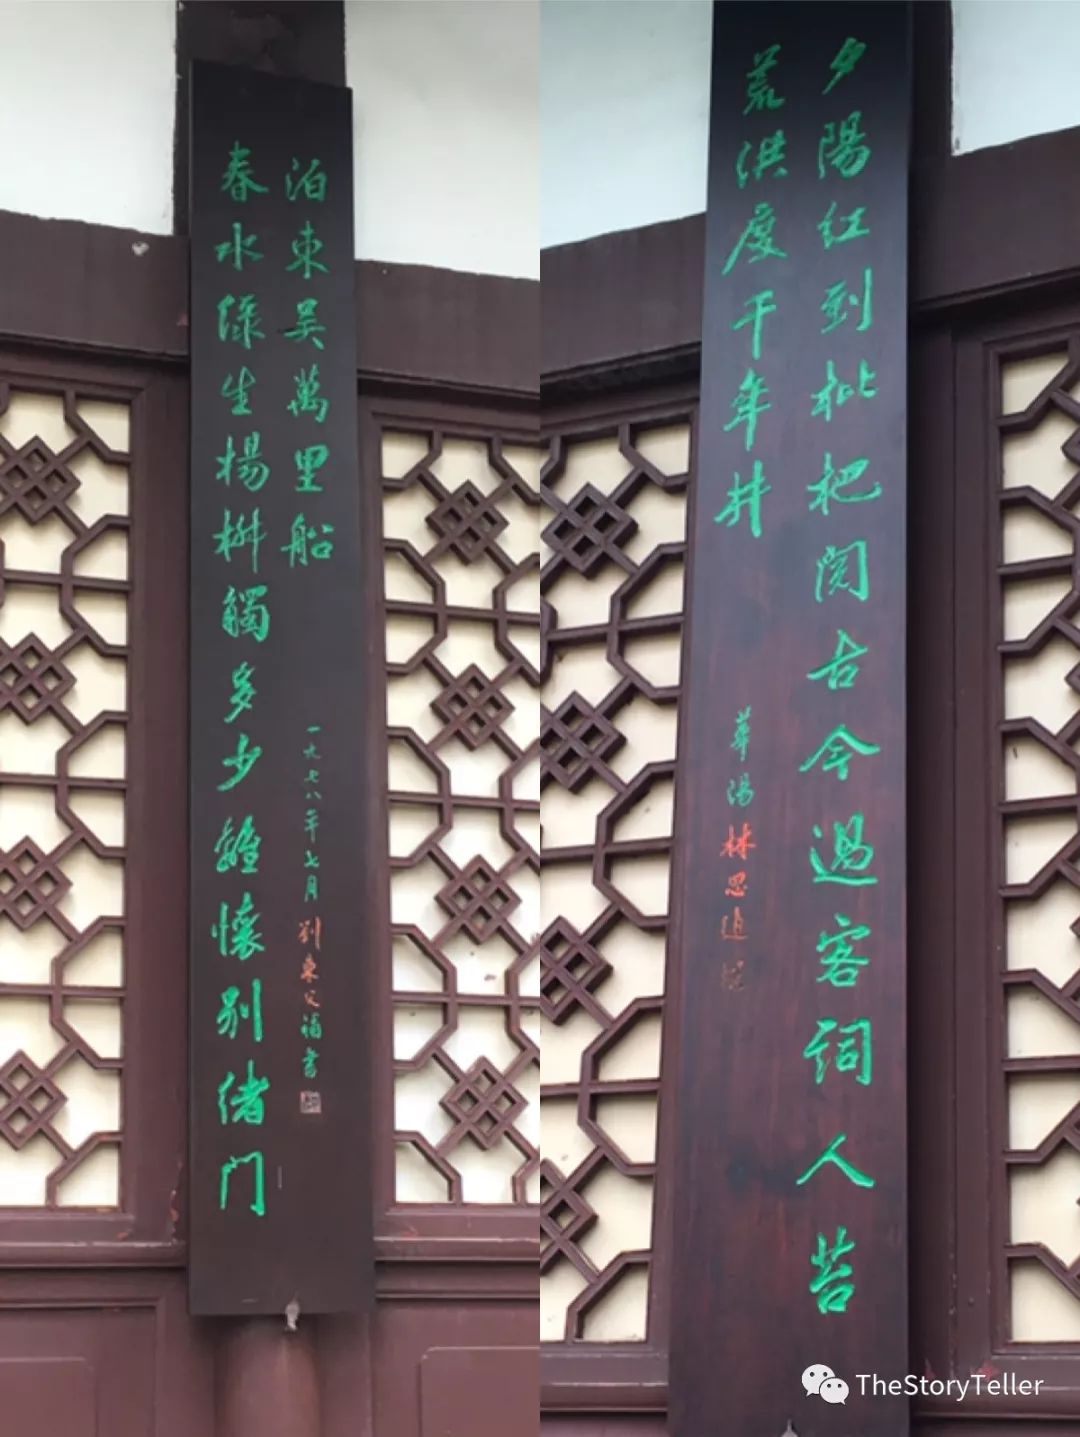 夕陽红到枇杷閱古今過客詞人苔
荒洪度千年井
華陽林思進
春水綠生楊柳觸多少離懷別緒门
泊東吳萬里船
一九七八年七月劉東父補書
TheStoryTeller